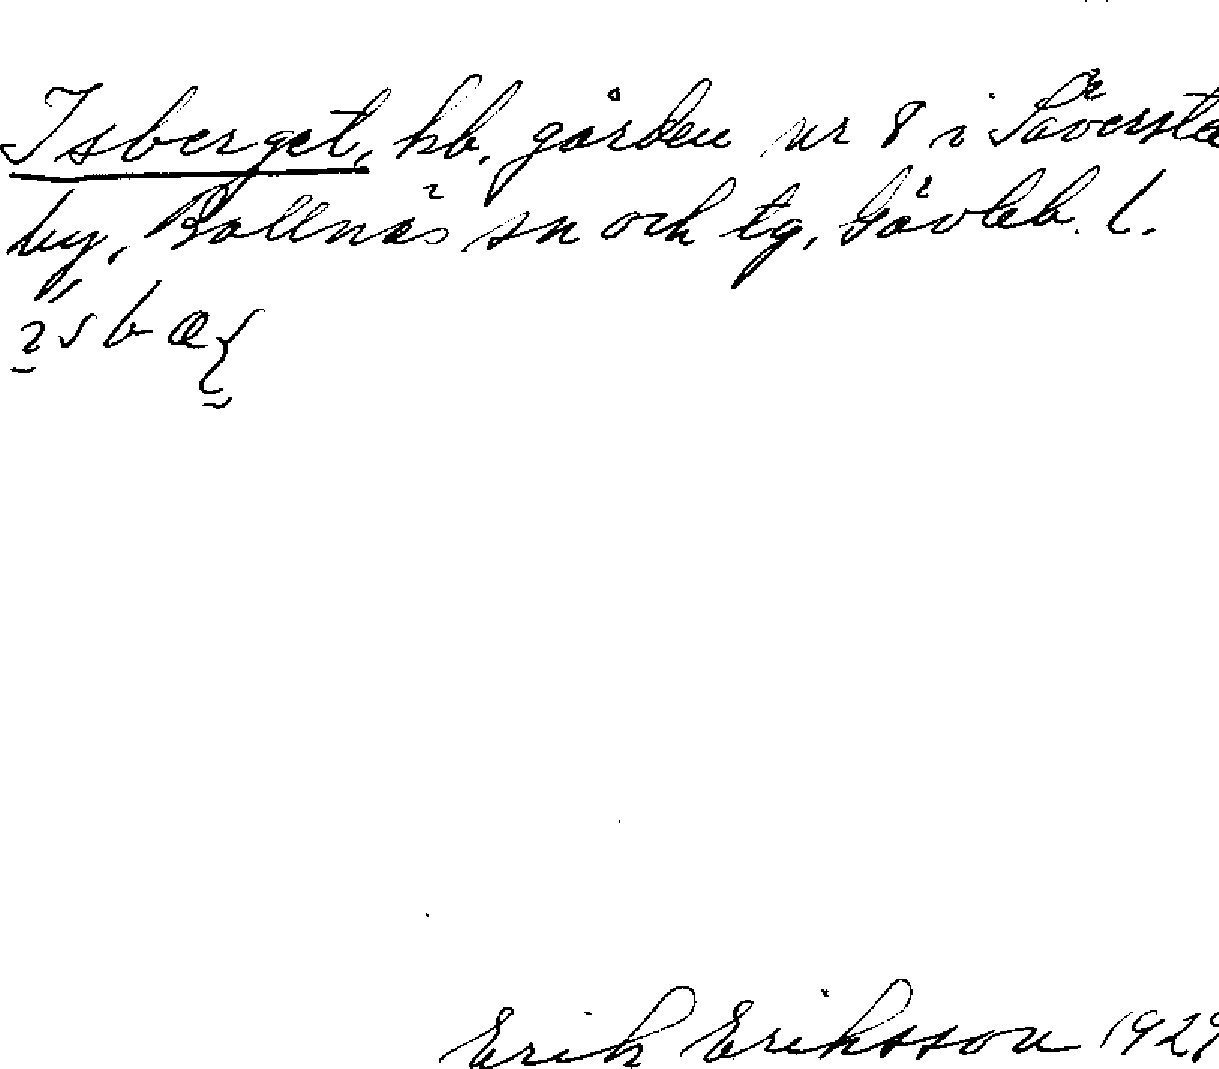 Isberget, hb. gården nr 8 i Säversta
by, Bollnäs sn och tg, Gävleb. l.
Erik Eriksson 1929